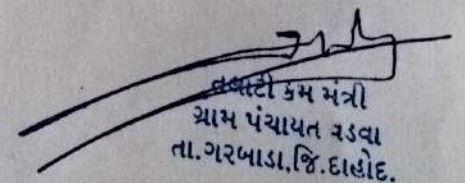 તલાટી કમ મંત્રી
ગ્રામ પંચાયત વડવા
તા.ગરબાડા.જિ.દાહોદ.